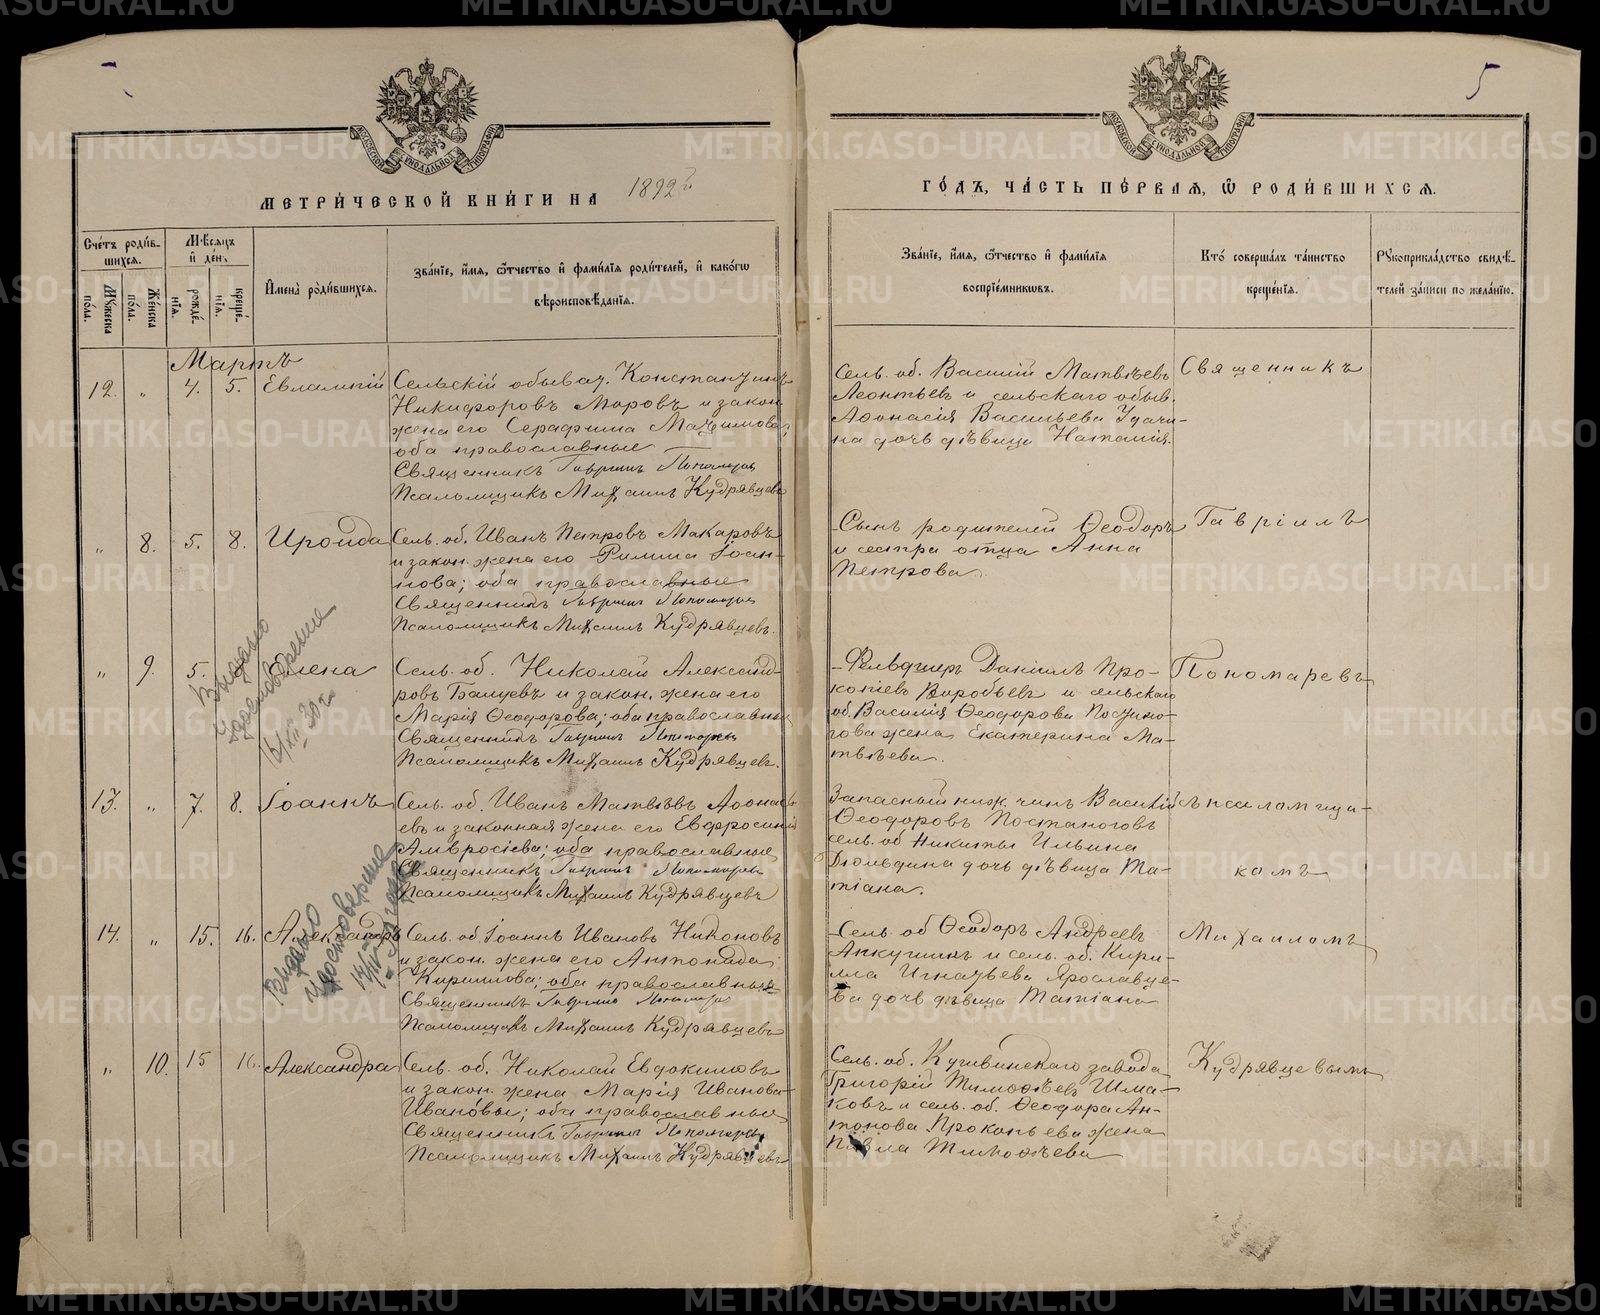 5
МЕТРИ́ЧЕСКОЙ КНИ́ГИ НА 1892 г.
ГО́ДЪ, ЧА́СТЬ ПЕ́РВАЯ, Ѽ РОДИ́ВШИХСЯ.
Сче́тъ роди́в-
шихся.
Мꙋ́жеска по́ла.
Же́нска по́ла.
Мѣ́сяцъ и де́нь
рожде́нїя.
креще́нїя.
И҆мена̀ роди́вшихся.
Зва́нїе, и҆́мя, ѻ҆́тчество и҆ фами́лїя роди́телей, и҆ како́гѡ
вѣроисповѣ́данїя.
Зва́нїе, и҆́мя, ѻ҆́тчество и҆ фами́лїя
воспрїе́мникѡвъ.
Кто̀ соверша́лъ та́инство
креще́нїя.
Рꙋкоприкла́дство свидѣ́-
телей за́писи по жела́нїю.
Мартъ
12. „ 4. 5. Евлампій
Сельскій обыват. Константинъ
Никифоровъ Моровъ и закон.
жена его Серафима Максимова;
оба православные
Священникъ Гавриилъ Пономаревъ
Псаломщикъ Михаилъ Кудрявцевъ
Сель. об. Василій Матвѣевъ
Леонтьевъ и сельскаго обыв.
Аѳонасія Васильева Удачи-
на дочь дѣвица Наталія.
Священникъ
„ 8. 5. 8. Ироида
Сель. об. Иванъ Петровъ Макаровъ
и закон. жена его Римма Іоан-
нова; оба православные
Священникъ Гавриилъ Пономаревъ
Псаломщикъ Михаилъ Кудрявцевъ.
Сынъ родителей Ѳеодоръ
и сестра отца Анна
Петрова.
Гавріилъ
„ 9. 5. Елена
Сель. об. Николай Александ-
ровъ и закон. жена его
Марія Ѳеодорова; оба православные
Священникъ Гавриилъ Пономаревъ
Псаломщикъ Михаилъ Кудрявцевъ.
Выдано
удостоверение
16/XII 30 г.
Фельдшеръ Даніилъ Про-
копіевъ Воробьевъ и сельскаго
об. Василія Ѳеодорова Постоно-
гова жена Екатерина Ма-
твѣева.
Пономаревъ
13. „ 7. 8. Іоаннъ
Сель. об. Иванъ Матвѣевъ Аѳонась-
евъ и законная жена его Евфросинія
Амвросіева; оба православные
Священникъ Гавриилъ Пономаревъ
Псаломщикъ Михаилъ Кудрявцевъ
Запасный ниж. чинъ Василій
Ѳеодоровъ Постоноговъ
сель. об Никиты Ильина
Дюльдина дочь дѣвица Та-
тіана.
съ псаломщи-
комъ
14. „ 15. 16. Александръ
Сель. об. Іоаннъ Ивановъ Никоновъ
и закон. жена его Антонида
Кирилова; оба православные
Священникъ Гавриилъ Пономаревъ
Псаломщикъ Михаилъ Кудрявцевъ
Выдано
удостоверение
Сель. об Ѳеодоръ Андреевъ
и сель. об. Кири-
лла Игнатьева Ярославце-
ва дочь дѣвица Татіана
Михаиломъ
„ 10. 15 16. Александра
Сель. об. Николай Евдокимовъ
и закон. жена Марія Иванова
Ивановы; оба православные
Священникъ Гавриилъ Пономаревъ
Псаломщикъ Михаилъ Кудрявцевъ
Сель. об. Кушвинскаго завода
Григорій Тимоѳѣевъ Шма-
ковъ и сель. об. Ѳеодора Ан-
тонова Прокопьева жена
Павла Тимоѳѣева
Кудрявцевымъ
METRIKI.GASO-URAL.RU